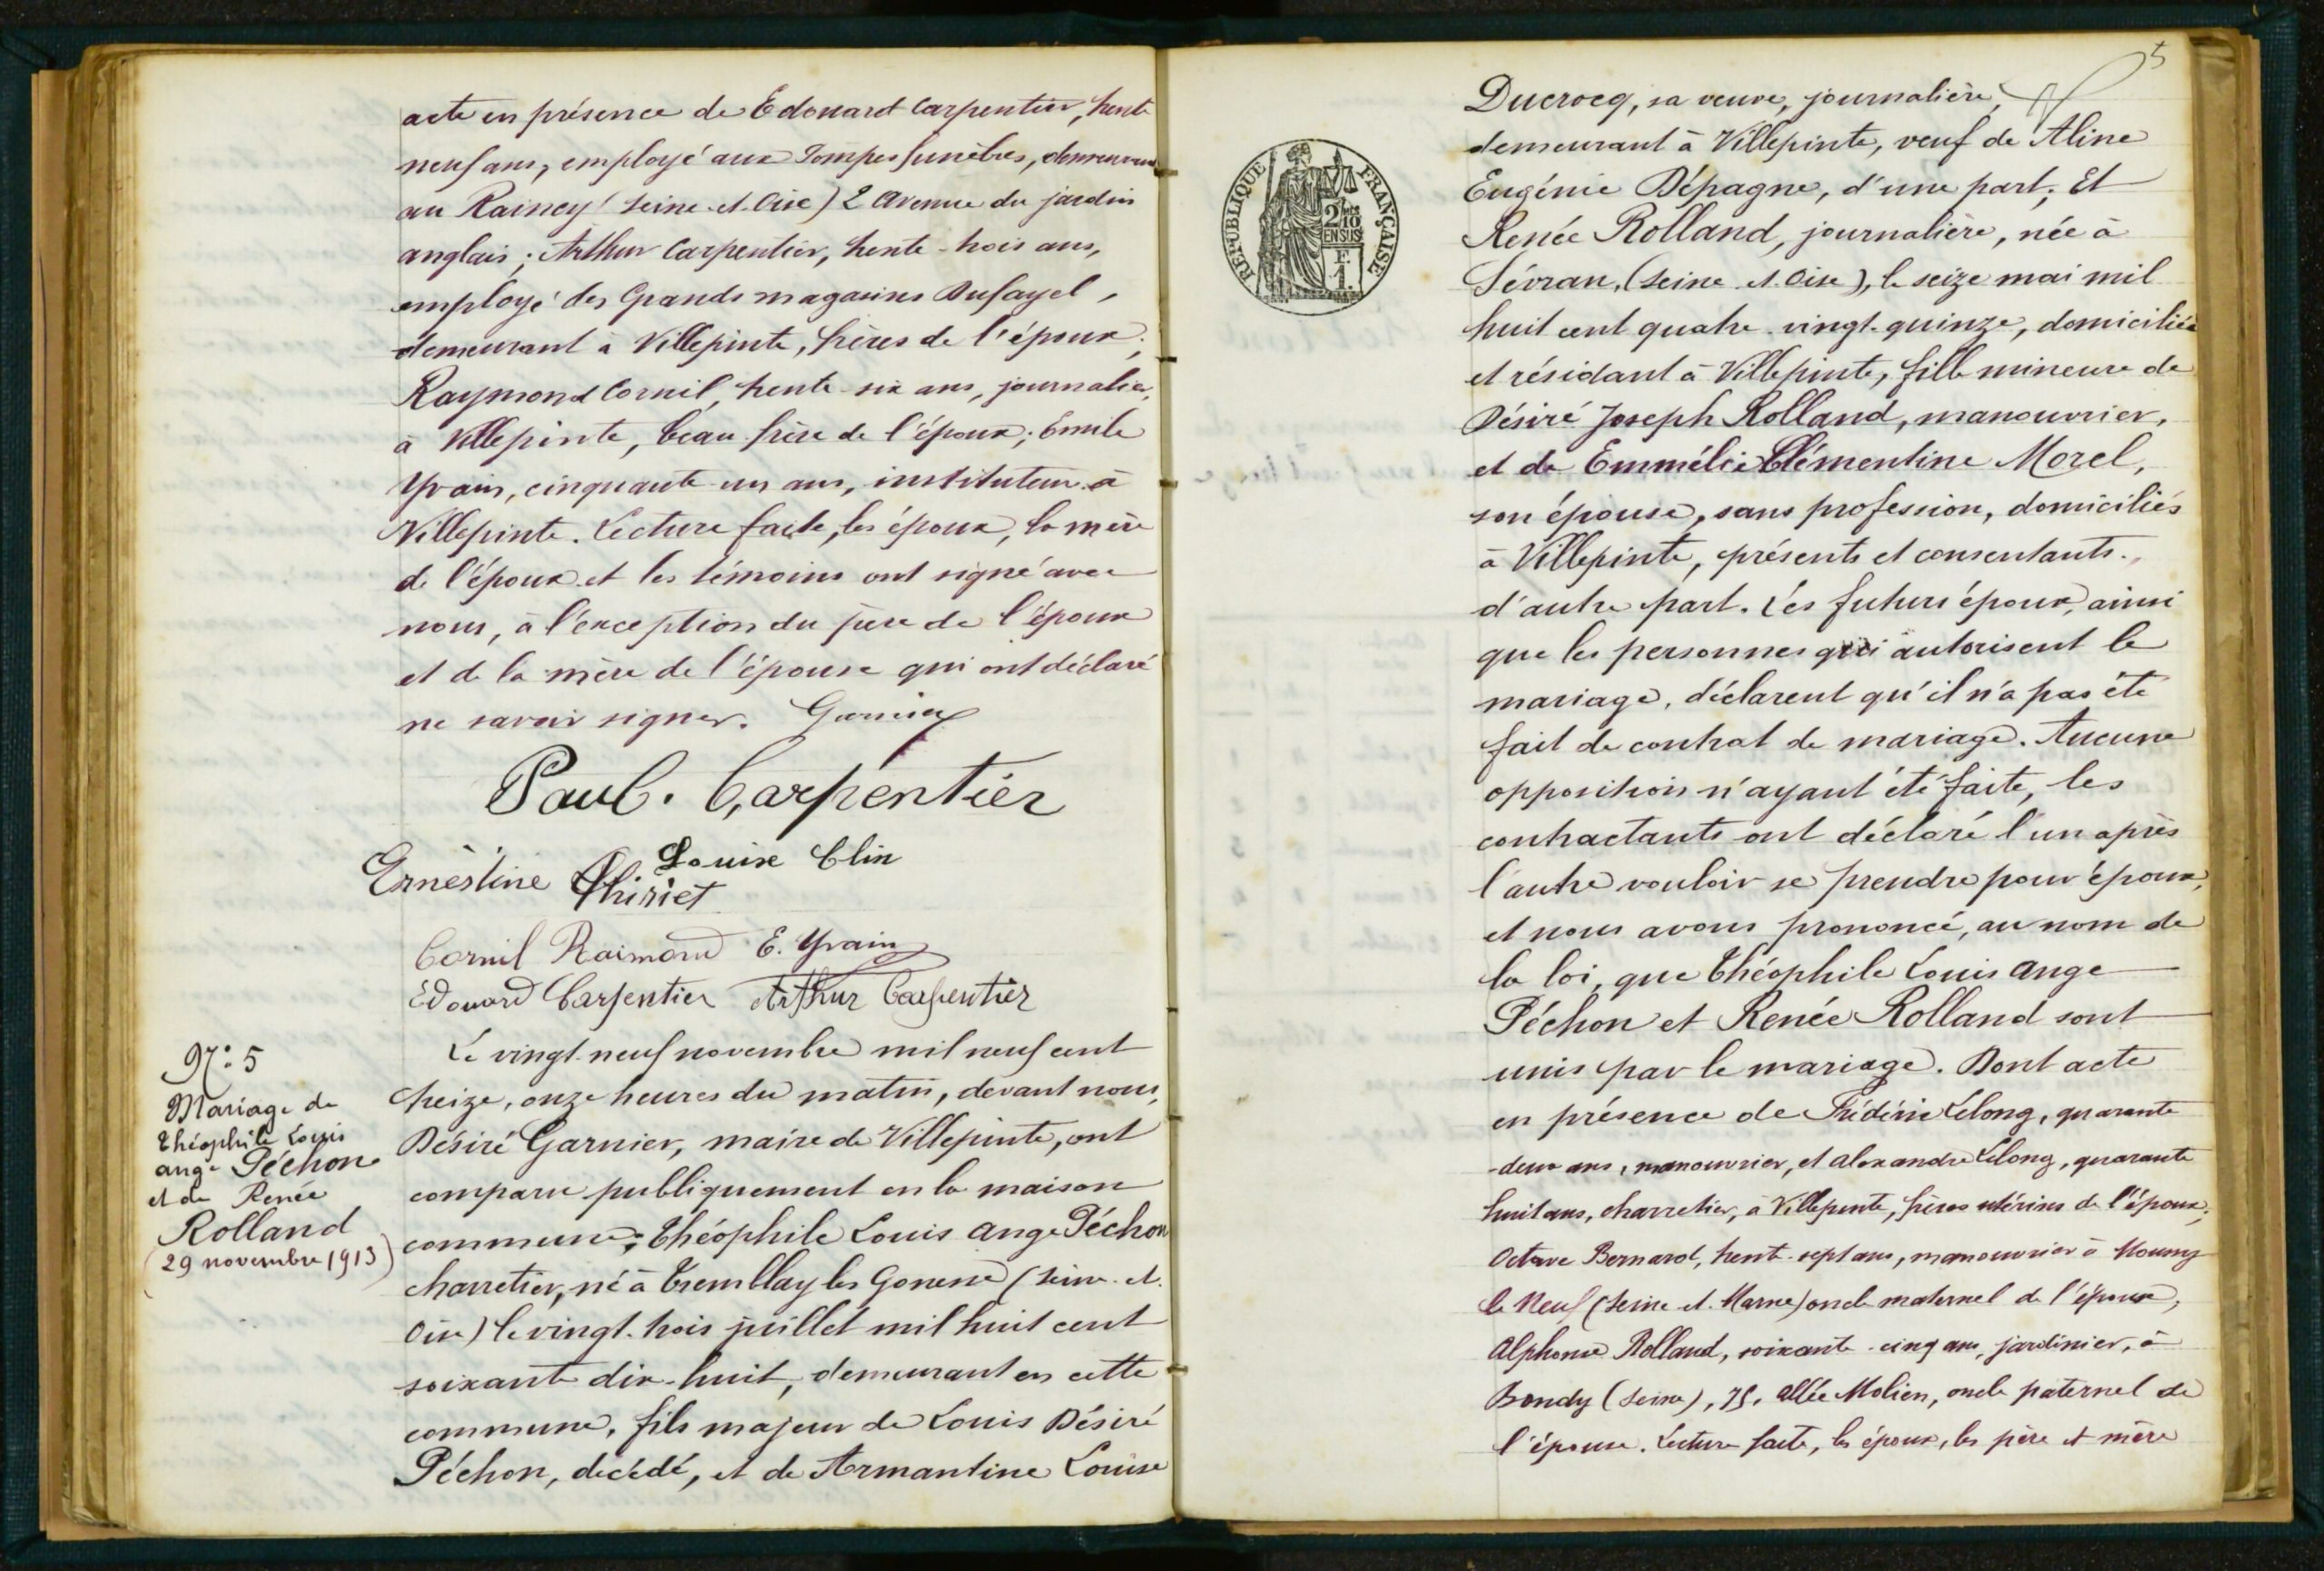 acte en présence de Edouard Carpentier, trente
neuf ans, employé aux Pompes funèbres, demeurant
au Raincy (Seine-et-Oise) 2 Avenue du jardin
anglais ; Arthur Carpentier, trente-trois ans,
employé des Grands magasins Dufayel,
demeurant à Villepinte, frères de l'époux ;
Raymond Cornil, trente-six ans, journalier,
à Villepinte, beau-frère de l'époux ; Emile
Yvain, cinquante-un ans, instituteur à
Villepinte. Lecture faite, les époux, la mère
de l'époux et les témoins ont signé avec
nous, à l'exception du père de l'époux
et de la mère de l'épouse qui ont déclaré
ne savoir signer. Garnier
Paul. Carpentier
Louise Clin
Ernestine Thiriet
Cornil Raimond E. Yvain
Edouard Carpentier Arthur Carpentier
N° 5
Mariage de
Théophile Louis
ange Péchon
et de Renée
Rolland
(29 novembre 1913)
Le vingt-neuf novembre mil neuf cent
treize, onze heures du matin, devant nous,
Désiré Garnier, maire de Villepinte, ont
comparu publiquement en la maison
commune : Théophile Louis ange Péchon
charretier, né à Tremblay les Gonesse (Seine-et-
Oise) le vingt-trois juillet mil huit cent
soixante dix-huit, demeurant en cette
commune, fils majeur de Louis Désiré
Péchon, décédé, et de Armantine Louise
5
Ducrocq, sa veuve, journalière,
demeurant à Villepinte, veuf de Aline
Eugénie Dépagne, d'une part ; Et
Renée Rolland, journalière, née à
Sévran, (Seine-et-Oise), le seize mai mil
huit cent quatre-vingt-quinze, domiciliée
et résidant à Villepinte, fille mineure de
Désiré Joseph Rolland, manouvrier,
et de Emmélie Clémentine Morel,
son épouse, sans profession, domiciliés
à Villepinte, présents et consentants.,
d'autre part. Les futurs époux, ainsi
que les personnes qui autorisent le
mariage, déclarent qu'il n'a pas été
fait de contrat de mariage. Aucune
opposition n'ayant été faite, les
contractants ont déclaré l'un après
l'autre vouloir se prendre pour époux,
et nous avons prononcé, au nom de
la loi, que Théophile Louis ange
Péchon et Renée Rolland sont
unis par le mariage. Dont acte
en présence de Frédéric Lelong, quarante
-deux ans, manouvrier, et alexandre Lelong, quarante
huit ans, charretier, à Villepinte, frères utérins de l'époux ;
Octave Bernard, trente-sept ans, manouvrier à Moussy
le Neuf (Seine-et-Marne) oncle maternel de l'épouse,
Alphonse Rolland, soixante-cinq ans, jardinier, à
Bondy (Seine), 75, allée Molien, oncle paternel de
l'épouse. Lecture faite, les époux, les père et mère
RÉPUBLIQUE FRANÇAISE
2/10
EN SUS
F.
1.